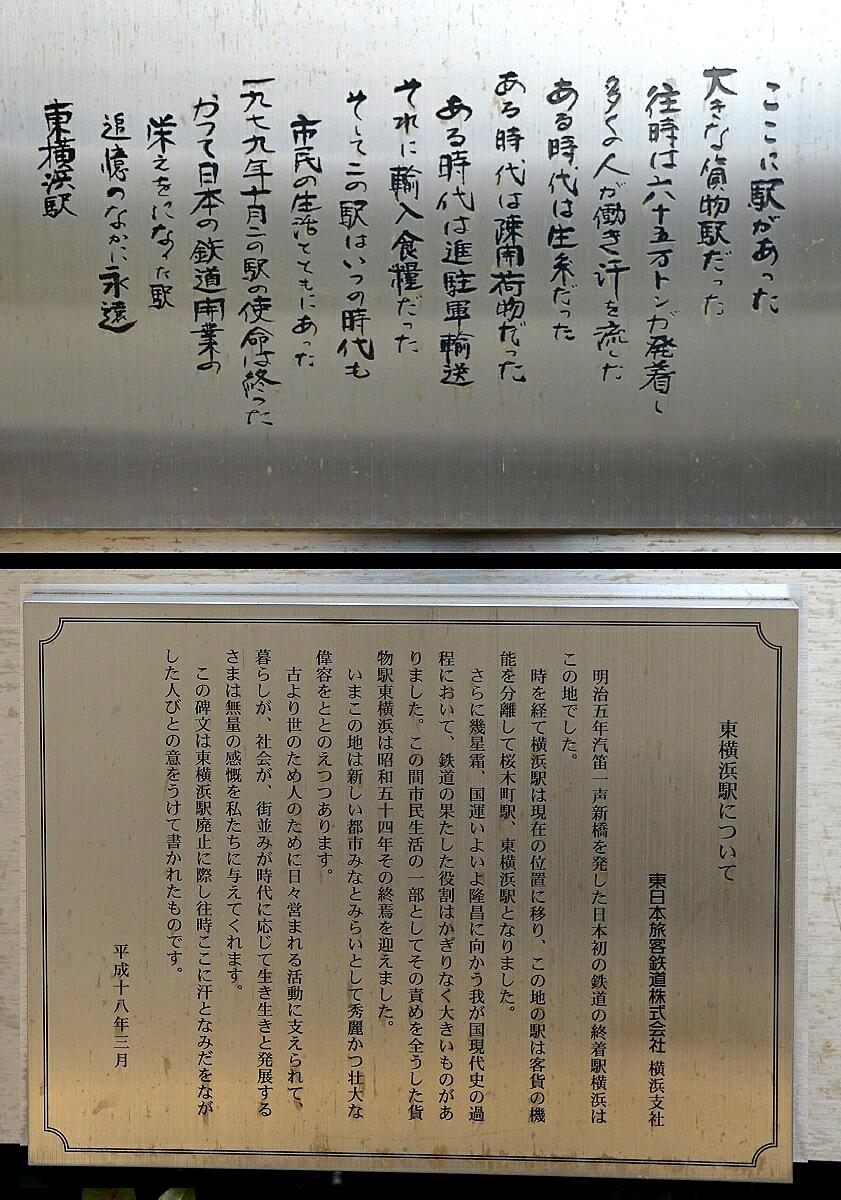 ここに駅があった
大きな貨物駅だった
往時は六十五万トンが発着し
多くの人が働き汗を流した
ある時代は生糸だった
ある時代は疎開荷物だった
ある時代は進駐軍輸送
それに輸入食糧だった
そしてこの駅はいつの時代も
市民の生活とともにあった
一九七九年十月この駅の使命は終った
かつて日本の鉄道開業の
栄えをになった駅
追憶のなかに永遠
東横浜駅
東横浜駅について
東日本旅客鉄道株式会社 横浜支社
明治五年汽笛一声新橋を発した日本初の鉄道の終着駅横浜は
この地でした。
時を経て横浜駅は現在の位置に移り、この地の駅は客貨の機
能を分離して桜木町駅、東横浜駅となりました。
さらに幾星霜、国運いよいよ隆昌に向かう我が国現代史の過
程において、鉄道の果たした役割はかぎりなく大きいものがあ
りました。この間市民生活の一部としてその責めを全うした貨
物駅東横浜は昭和五十四年その終焉を迎えました。
いまこの地は新しい都市みなとみらいとして秀麗かつ壮大な
偉容をととのえつつあります。
古より世のため人のために日々営まれる活動に支えられて、
暮らしが、社会が、街並みが時代に応じて生き生きと発展する
さまは無量の感慨を私たちに与えてくれます。
この碑文は東横浜駅廃止に際し往時ここに汗となみだをなが
した人びとの意をうけて書かれたものです。
平成十八年三月